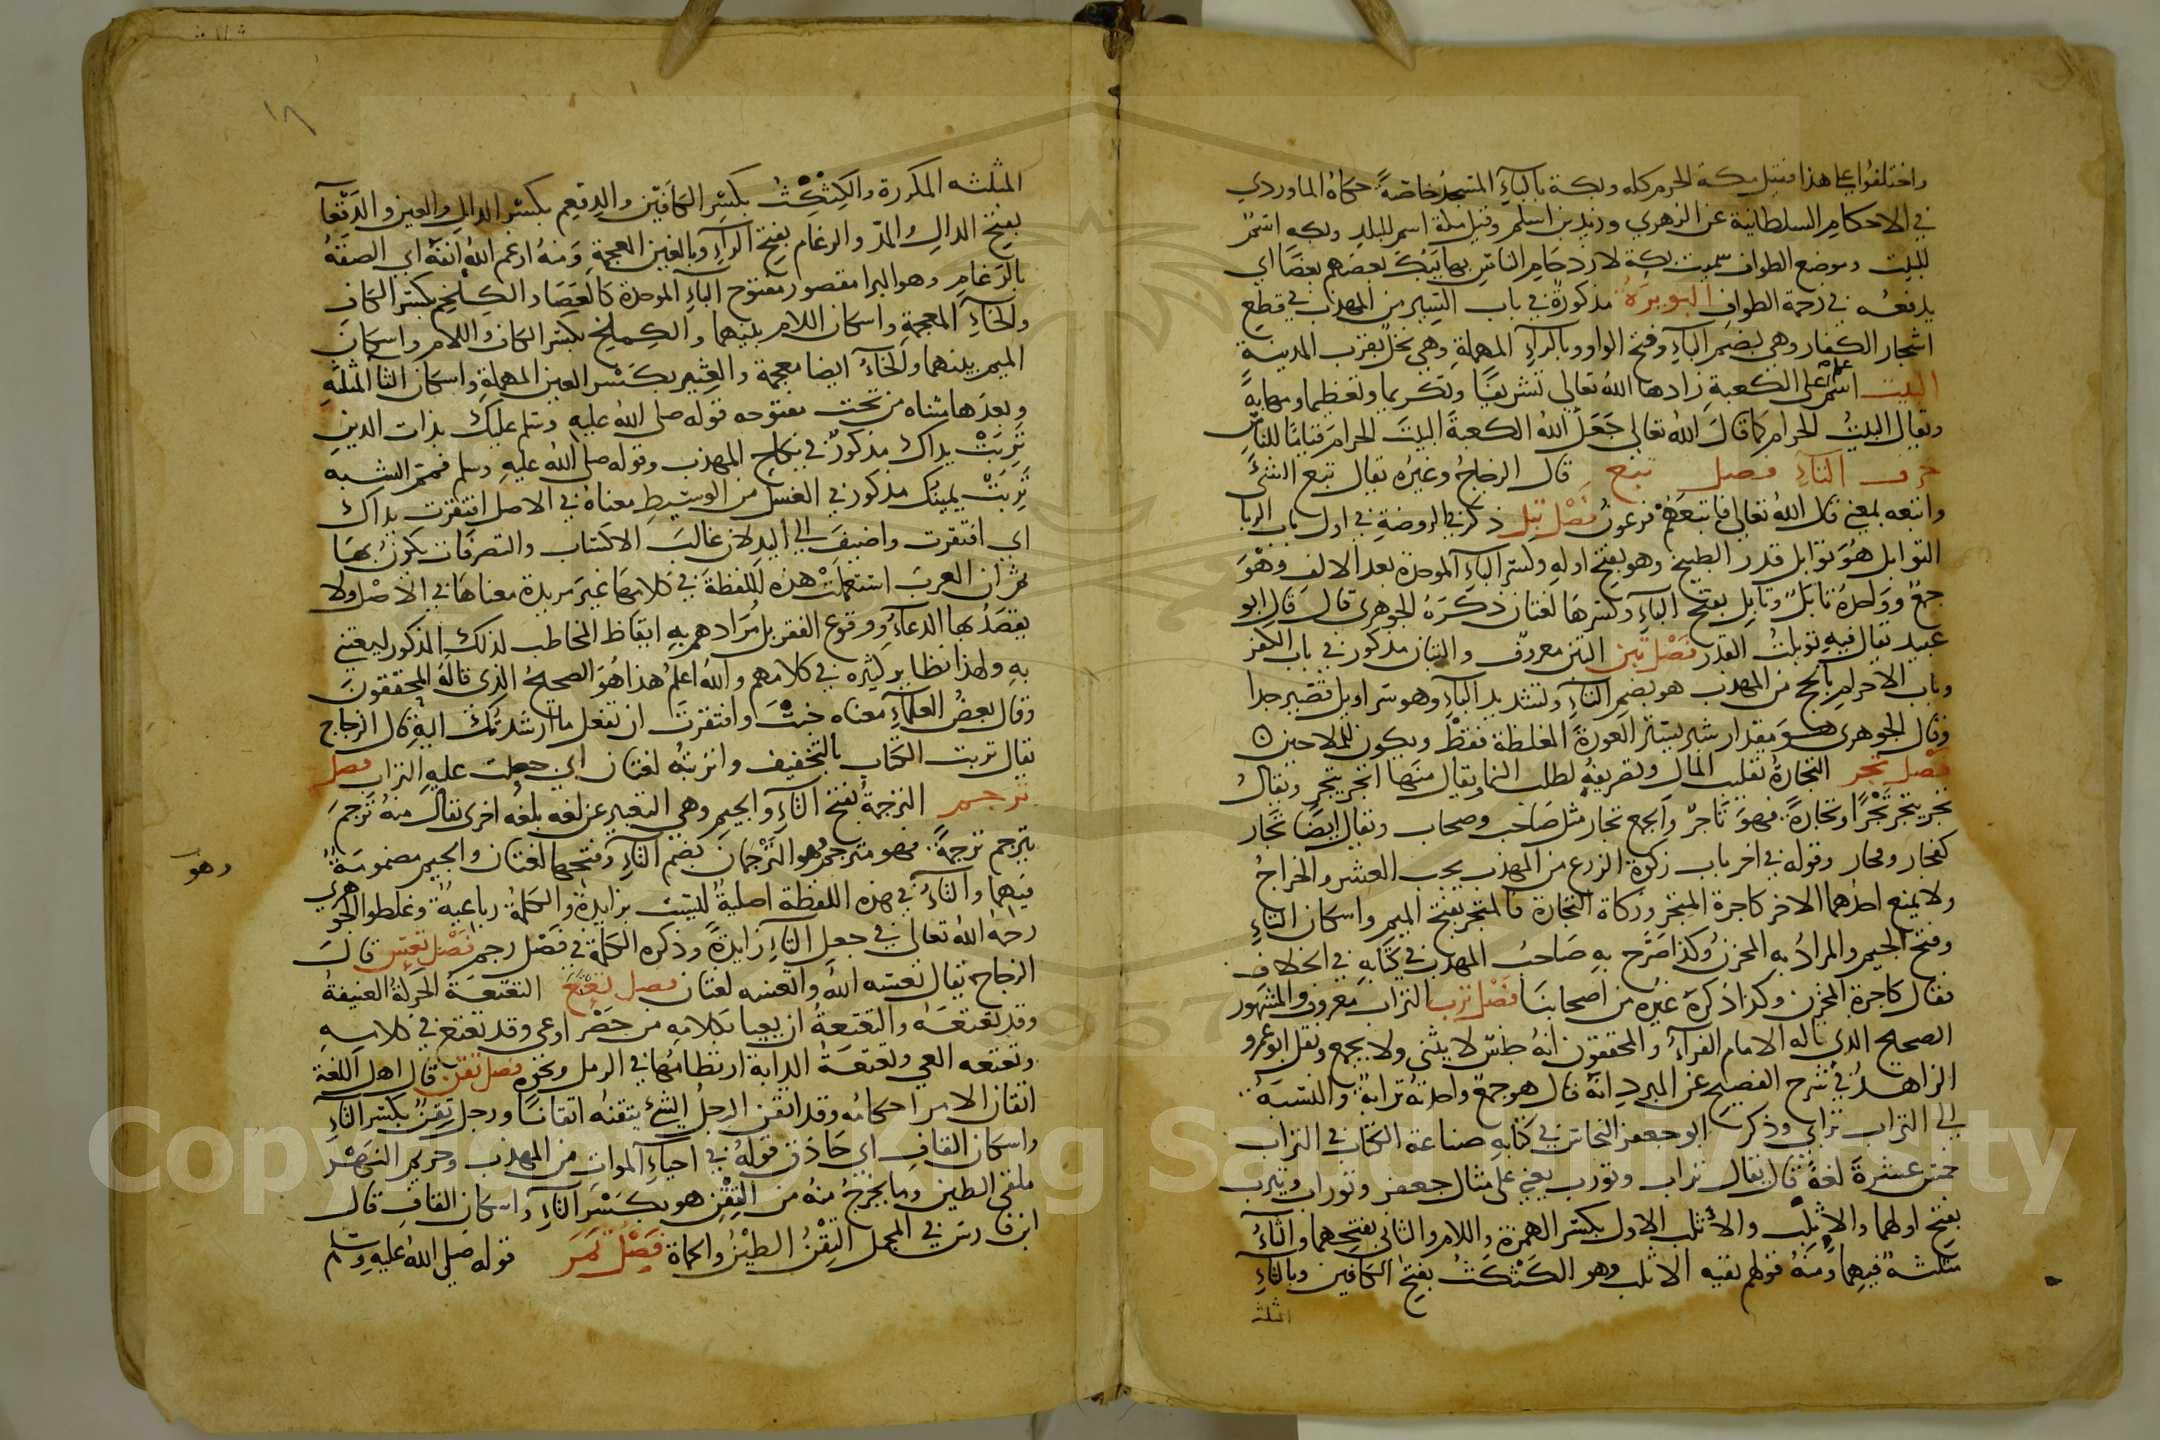 واختلفوا على هذا فقيل مكة الحرم كله وبكة بالباءِ المسجدُ خاصّةً حكاهُ الماوردي
في الاحكامِ السلطانية عن الزهري وزيد بن اسلم وقيل مكة اسم للبلدِ وبكه اسمٌ
للبيت وموضع الطواف سميت بكة لازدحامِ الناسِ بها يَبُكّ بعضهم بعضًا اي
يدفعه في زحمة الطوافِ البويرَةُ مذكورةٌ في باب السِيرِ من المهذب في قطع
اشجار الكفار وهي بضمِ الباءِ وفتحِ الواو وبالراءِ المهملةِ وهي نخل بقرب المدينة
البيت اسمٌ على الكعبةِ زادها اللهُ تعالى تشريفًا وتكريما وتعظيما ومهابةً
ويقال البيتُ الحرام كما قالَ الله تعالى جَعَلَ اللهُ الكعبةَ البيتَ الحرامَ قيامًا للناسِ
حرف التاءِ فصل تبع قال الزجاجُ وغيرُه يقال تبع الشئَ
واتبعه بمعنى قال اللهُ تعالى فاتبعَهُمْ فرعونُ فصْل تبل ذكر في الروضةِ في اول باب الربا
التوابل هُوَ توابل قدر الطبيخ وهو بفتحِ اولهِ وكسر الباءِ الموحدة بعد الالفِ وهْوَ
جمعٌ وواحدُهُ تابَلٌ وتابِل بفتح الباءِ وكسرهَا لغتان ذكَرَهُ الجوهرى قال قال ابو
عبيد يقال فيهِ توبلتُ القدر فصْل تبن التبن معروف والتبان مذكور في باب الكفن
وباب الاحرامِ بالحج من المهذب هو بضمِ التاءِ وتشديد الباءِ وهو سراويل قصير جدا
وقال الجوهرى هو مقدار شبر يستر العورةَ المغلظة فقطْ ويكون للملاحين ٥
فصْل تجر التجارةُ تقليب المالِ وتصريفهُ لطلب النما ويقال منها اتجر يتجر ويقالُ
تجر يتجر تَجْرًا وتجارةً فهوَ تَاجرٌ والجمع تجار مثل صَاحب وصحاب ويقال ايضًا تجّار
كفجار وفجار وقوله في اخر باب زكوة الزرع من المهذب يجب العشر والخراجُ
ولا يمنع احدُهما الاخر كاجرة المتجر وزكاة التجارة فالمتجر بفتح الميمِ واسكان التاءِ
وفتح الجيم والمرادُ بهِ المخزنُ وكذا صَرّح بهِ صَاحبُ المهذب في كتابهِ في الخلاف
فقال كاجرة المخزن وكذا ذكرهَ غيُره من اصحابنا فصْل ترب التراب معروف والمشهور
الصحيح الذي قاله الامام الفراءُ والمحققون انهُ جنسٌ لا يثنى ولا يجمع ونقل ابو عمرو
الزاهدُ في شرح الفصيح عن المبرد انهَ قال هو جمعٌ واحدتهُ ترابة والنسبَةُ
الى التراب ترابي وذكر ابو جعفر النحاس في كتابهِ صناعة الكتاب في التراب
خمسَ عشرةَ لغةً قال يقال تراب وتورب يعني على مثال جعفر وتوراب وتيرب
بفتح اولهما والإثلِب والأثلَب الاول بكسر الهمزة واللام والثاني بفتحِهما والثاءُ
مثلثة فيهما ومنهُ قولهم بفيه الاثلب وهو الكَثكَثُ بفتحِ الكافين وبالثاءِ
المثلثه
١٨
المثلثه المكررة والكِثكِثُ بكسْرِ الكافَيْن والدِقعِم بكسْر الدالِ والعين والدَقْعَآ
بفتحِ الدالِ والمدّ والرغام بفتح الراءِ وبالغين المعجمةِ وَمنهُ ارغم اللهُ انفهَ اي الصقهُ
بالرَغامِ وهو البرا مقصور مفتوح الباءِ الموحدة كالعَصَا والكِلْخِم بكسْر الكافِ
والخاءِ المعجمةِ واسكان اللام بينهما والكِمْلِخ بكسْرِ الكاف واللام واسكانِ
الميم بينهما والخاءُ ايضا معجمة والعِثير بكَسْر العين المهملةِ واسكان الثا المثلثهِ
وبعدَها مثناه من تحت مفتوحه قوله صلى الله عليهِ وسلم عليك بذات الدين
تَرِبَتْ يداك مذكورٌ في نكاح المهذب وقوله صلى الله عليهِ وسلم فمم الشبه
تَرِبَتْ يمينُك مذكور في الغسل من الوسيطِ معناهُ في الاصل افتقرت يداك
اي افتقرت واضيفَ الى اليدِ لان غالبَ الاكتساب والتصرفات يكونُ بهَا
ثم ان العربَ استعملَتْ هذهِ اللفظةَ في كلامِهَا غيَر مريدة معناهَا في الاصْل ولا
بقصدُ بها الدعاءُ ووقوع الفقر بل مُرَادهم بهِ ايقاظ المخاطب لذلك المذكور ليعتني
بهِ ولهذا نظاير كثيره في كلامهم واللهُ اعلمُ هذا هُوَ الصحيحُ الذي قالهُ المحققونَ
وقال بعضُ العلماءِ معناه خبْتَ وافتقرتَ ان تفعل ما ارشدتك اليهِ قال الزجاج
يقال تربت الكتاب بالتخفيف واتربته لغتان اي جعلت عليهِ التراب فصل
ترجم الترجمةُ بفتح التاءِ والجيمِ وهي التعبير عن لغه بلغه اخرى يقال منهُ تَرْجمَ
يترجم ترجمةً فهو مترجمٌ وهو التَرْجمان بضم التاءِ وفتحها لغتان والجيم مضمومَة
وهو
فيهما والتاءُ في هذه اللفظة اصليةٌ ليست بزايدةٍ والكلمةُ رباعيةٌ وغلطوا الجَوهري
رحمهُ اللهُ تعالى في جعلِ التاءِ زايدةً وذكره الكلمةَ في فَصْل رجم فصْل تعس قالَ
الزجاج يقال تعسَه اللهُ واتعسَه لغتان فصل تعتع التعتعةُ الحركةُ العنيفةُ
وقد تعتعَهُ والتعتعةُ ان يعيا بكلامِه من حَصْر اوعي وقد تعتع في كلامِه
وتعتعه العي وتعتعَةُ الدابة ارتطامُها في الرمل ونحوهِ فصل تقن قال اهل اللغة
اتقان الامر احكامُه وقد اتقنَ الرجلُ الشئَ يتقنُه اتقانًا ورجل تِقنٌ بكسْر التاءِ
واسكان القافِ اي حَاذق قولهُ في احياءِ المواتِ من المهذب وحريم النهْر
ملقى الطين وما يخرجُ منهُ من التقْنِ هو بكَسْر التاءِ واسكان القافِ قال
ابن فارس في المجمل التِقْنُ الطينُ والحماة فصْلُ تَمَر قوله صَلى اللهُ عليهِ وسلم